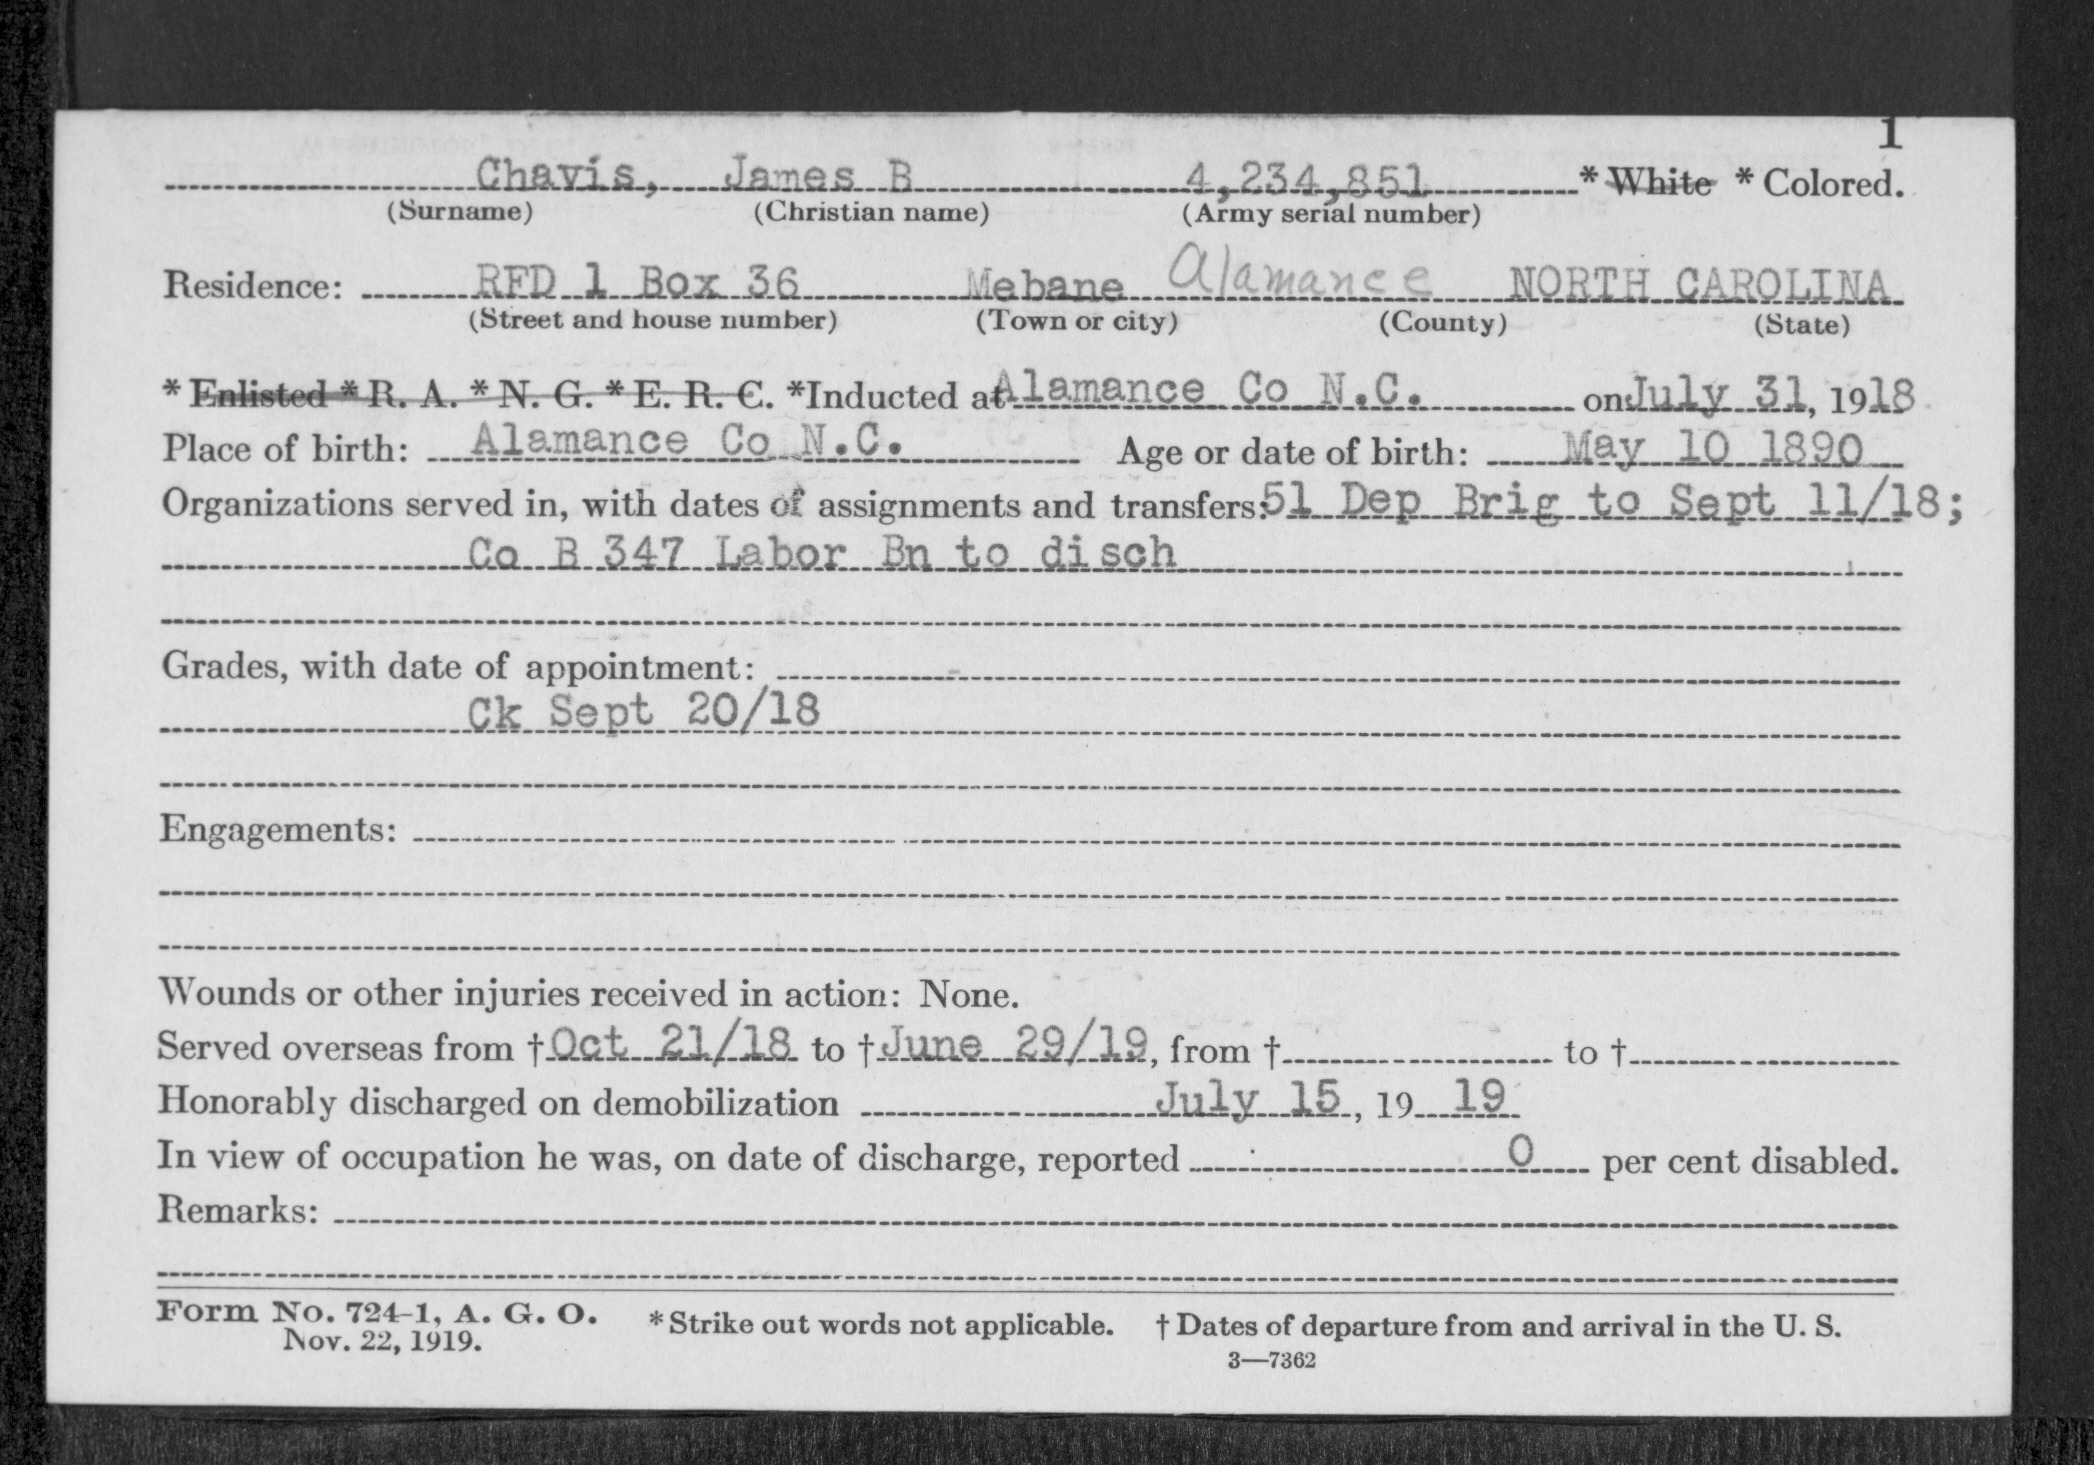 1
Chavis, James B 4,234,851 * White * Colored.
(Surname) (Christian name) (Army serial number)
Residence: RFD 1 Box 36 Mebane Alamance NORTH CAROLINA
(Street and house number) (Town or city) (County) (State)
* Enlisted * R. A. * N. G. * E. R. C. *Inducted at Alamance Co N.C. on July 31, 1918
Place of birth: Alamance Co N.C. Age or date of birth: May 10 1890
Organizations served in, with dates of assignments and transfers: 51 Dep Brig to Sept 11/18;
Co B 347 Labor Bn to disch
Grades, with date of appointment:
Ck Sept 20/18
Engagements:
Wounds or other injuries received in action: None.
Served overseas from † Oct 21/18 to † June 29/19, from † to †
Honorably discharged on demobilization July 15, 19 19
In view of occupation he was, on date of discharge, reported 0 per cent disabled.
Remarks:
Form No. 724-1, A. G. O. * Strike out words not applicable. † Dates of departure from and arrival in the U. S.
Nov. 22, 1919.
3—7362